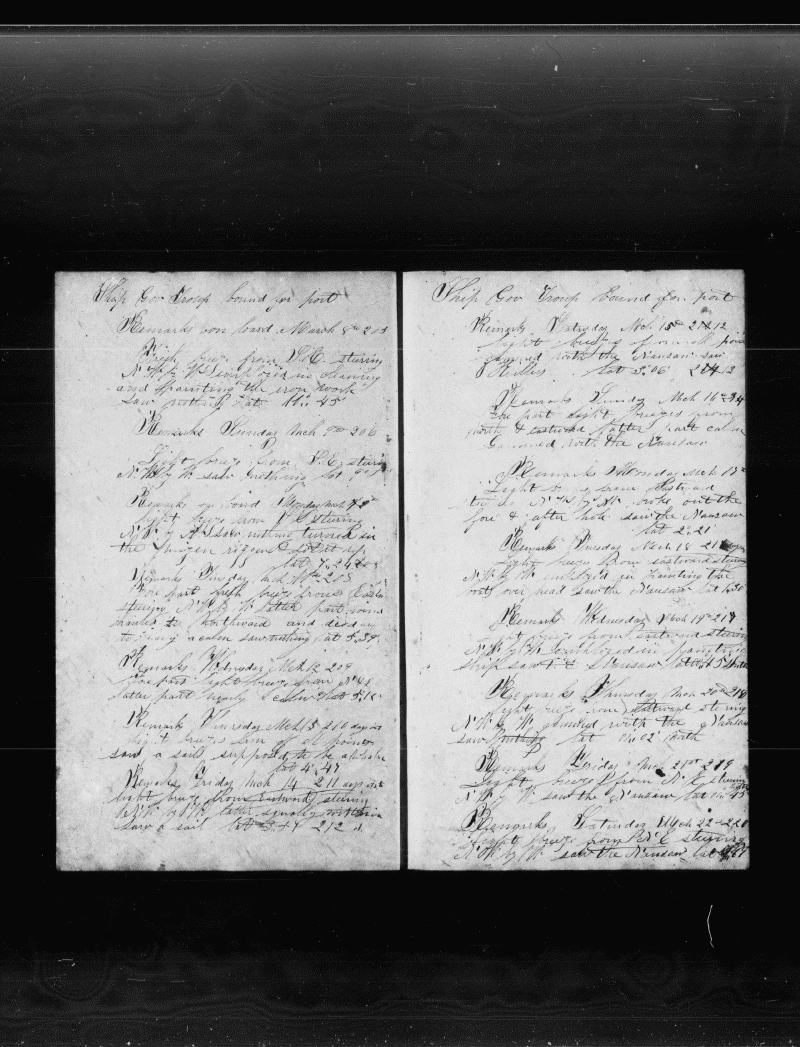 Ship Gov Troup bound for port
Remarks on board March 8th 205
Fresh breeze from S.E. steering
N.W. by W. employed in cleaning
and painting the iron work
saw nothing lat 11. 45
Remarks Sunday Mch 9th 206
Light breeze from S.E. steering
N.W. by W. saw nothing lat
Remarks on board Monday Mch
light breeze from S.E. steering
N.W. by W. saw nothing turned in
the rigging set it up
lat 7.24
Remarks Tuesday Mch 11th 208
Fore part fresh breeze from East
steering N.W. by W. latter part wind
hauled to Northward and died away
to nearly a calm saw nothing lat 5.59
Remarks Wednesday Mch 12 209
Fore part light breeze from N.E.
latter part nearly calm lat 5.18
Remark Thursday Mch 13 210 days out
light breeze from all points
saw a sail supposed to be a whale
lat 4.41
Remarks Friday Mch 14 211 days out
light breeze from Eastward steering
N.W. by W. latter squally
saw a sail lat 3.44 212 d
Ship Gov Troup bound for port
Remark Saturday Mch 15th 212
light breeze from all points
gammed with the Nausaw saw
lat 3.06 213
Remarks Sunday Mch 16th
Fore part light breezes from
north & eastward latter part calm
Gammed with the Nausaw
Remarks Monday Mch 17th
Light breeze from Eastward
steering N.W. by W. broke out the
fore & after hole saw the Nausaw
lat 2.21
Remarks Tuesday Mch 18
Light breeze from eastward steering
N.W. by W. employed in painting the
over head saw the Nausaw lat 1.30
Remark Wednesday Mch 19th 217
light breeze from eastward steering
N.W. by W. employed in painting
ship saw the Nausaw lat
Remarks Thursday Mch 20th 218
light breeze from eastward steering
N.W. by W. gammed with the Nausaw
saw nothing lat 0.02 North
Remarks Friday Mch 21st 219
Light breeze from N.E. steering
N.W. by W. saw the Nausaw lat
Remarks Saturday Mch 22nd 220
Light breeze from N.E. steering
N.W. by W. saw the Nausaw lat